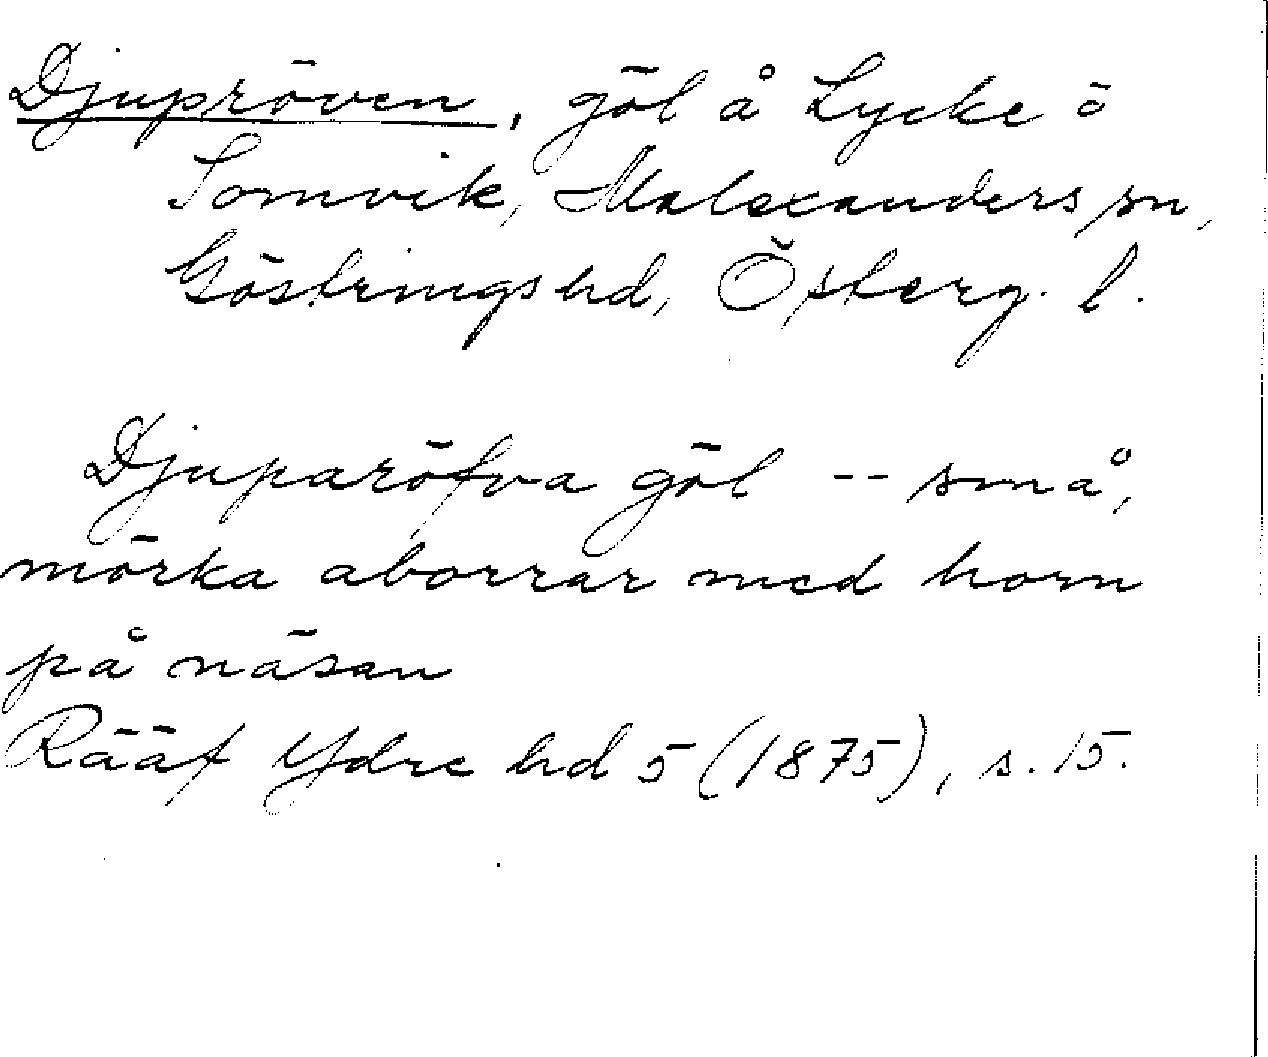 Djupröven, göl å Lycke ö
Somvik, Malexanders sn,
Göstrings hd, Österg. l.
Djuparöfva göl -- små,
mörka aborrar med horn
på näsan
Rääf Ydre hd 5 (1875), s. 15.